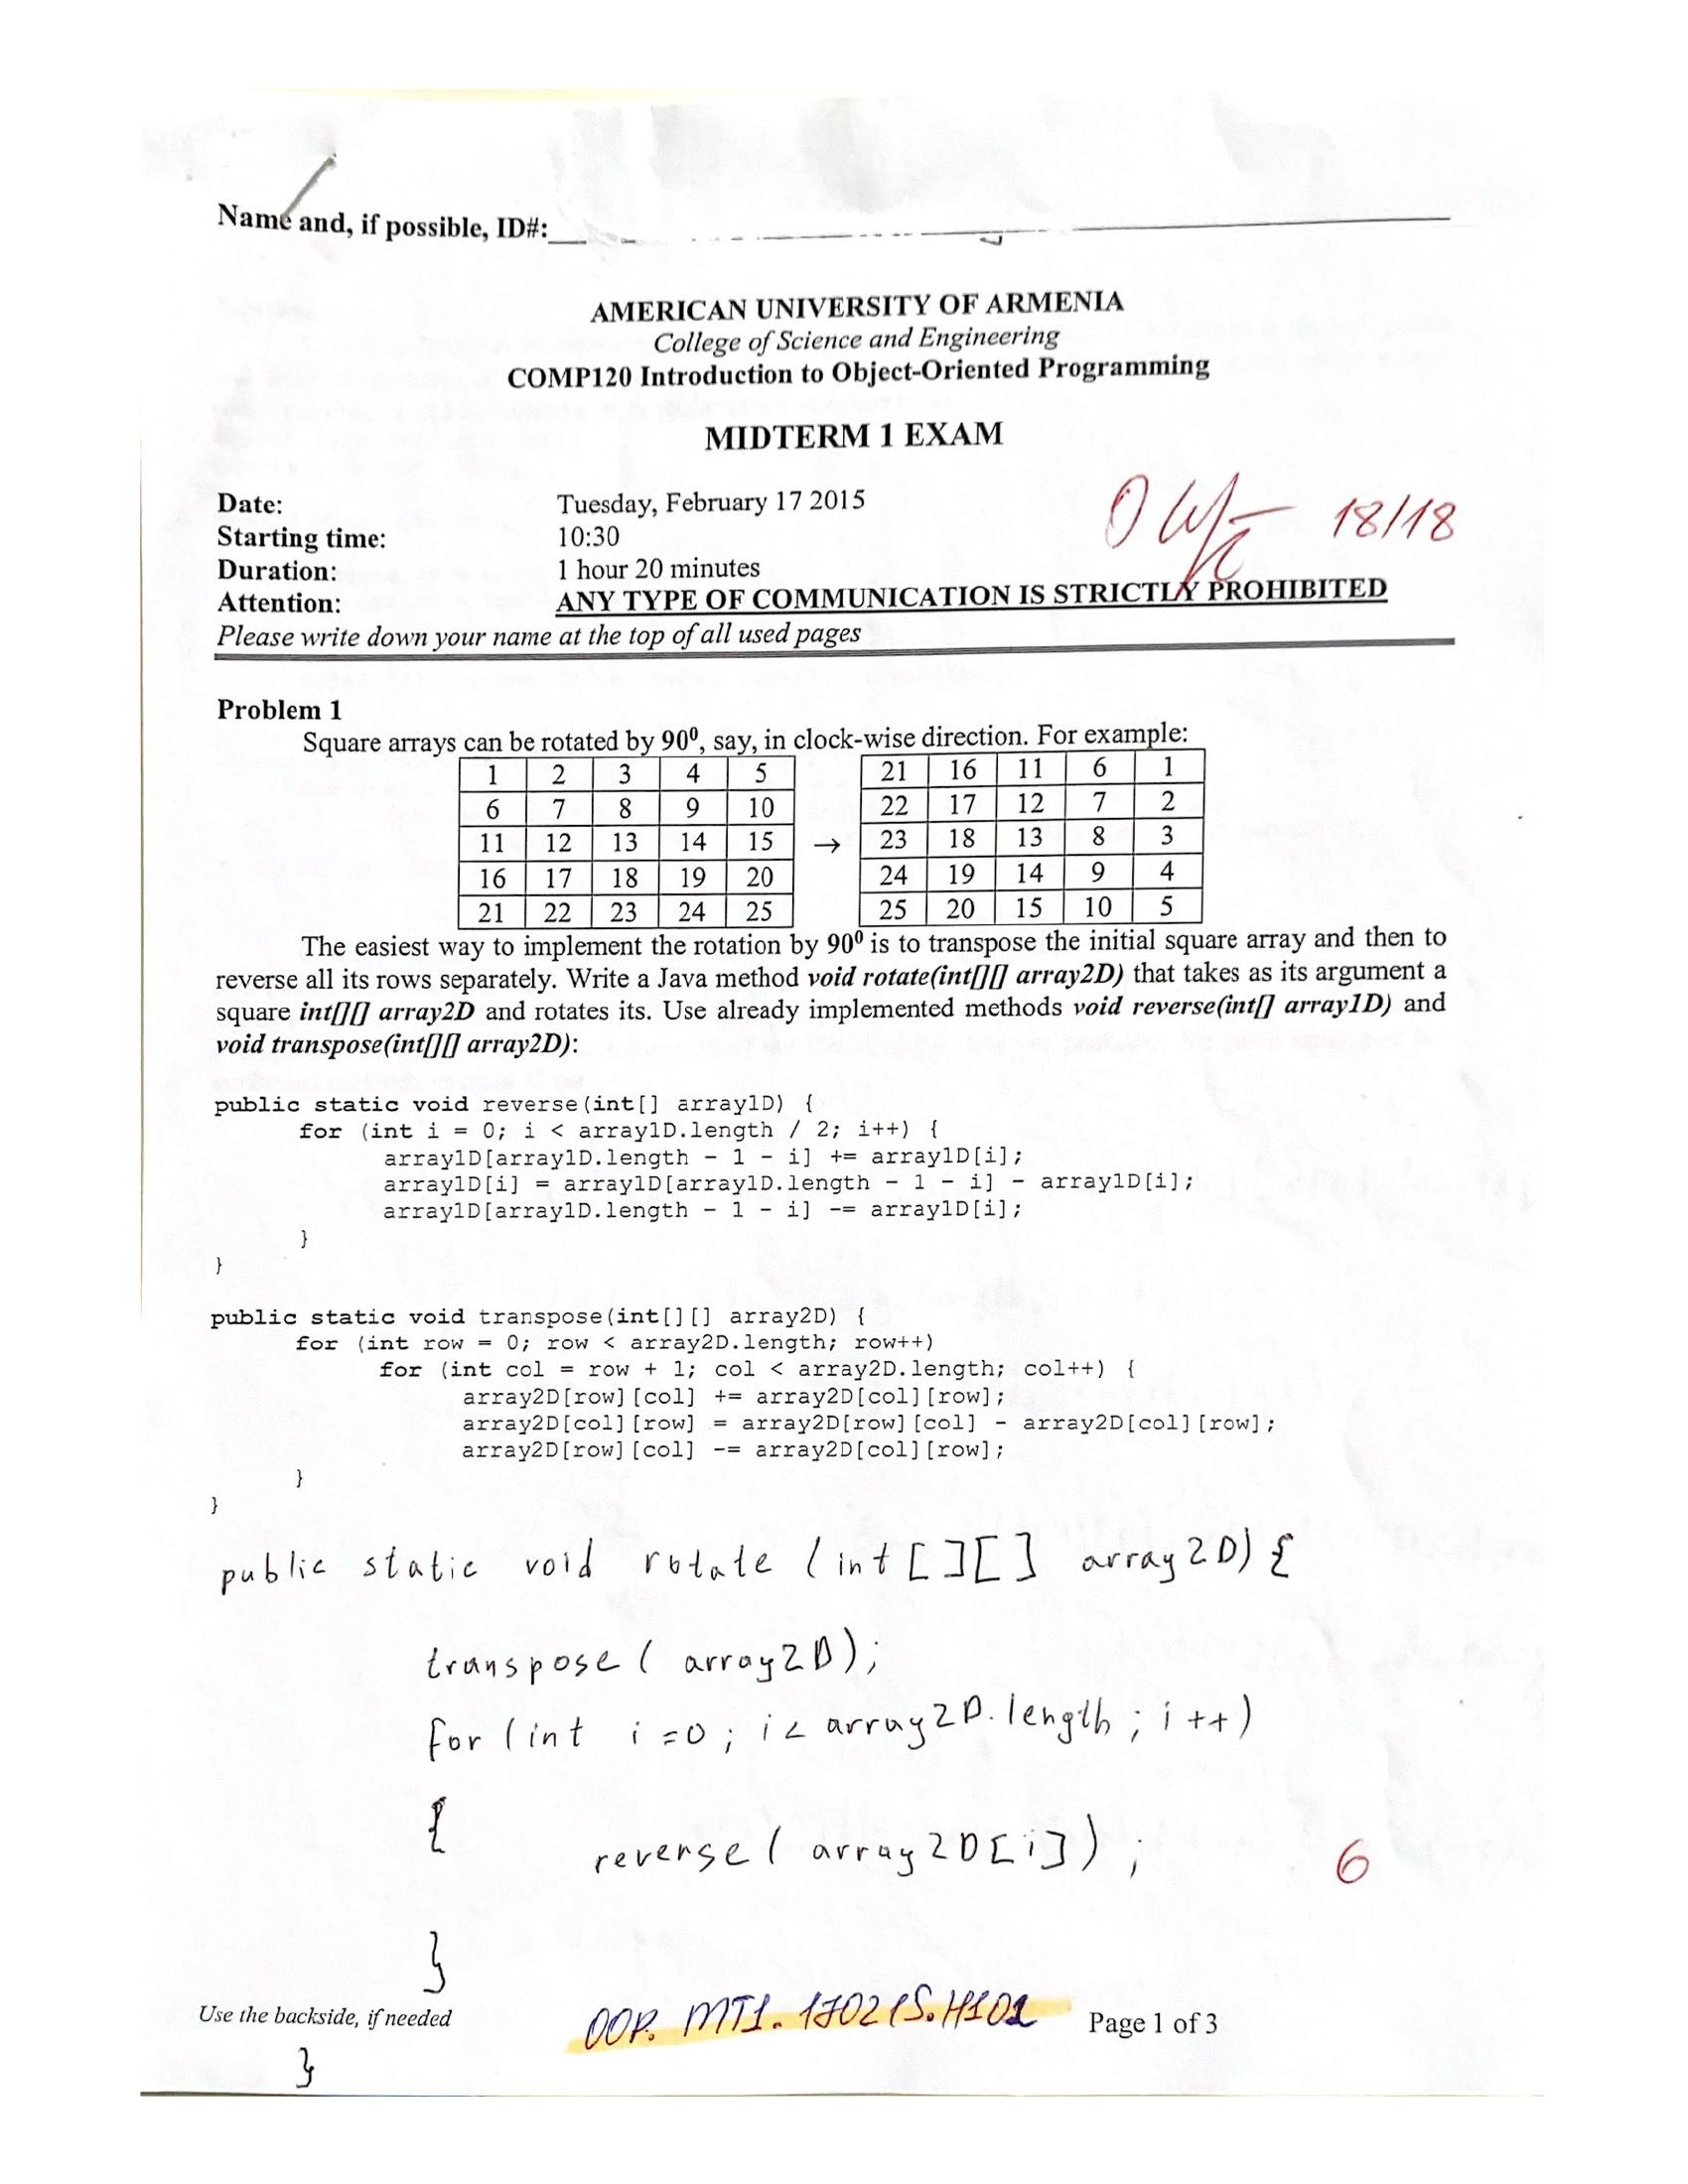 Name and, if possible, ID#:
AMERICAN UNIVERSITY OF ARMENIA
College of Science and Engineering
COMP120 Introduction to Object-Oriented Programming
MIDTERM 1 EXAM
Date: Tuesday, February 17 2015
Starting time: 10:30
18/18
Duration: 1 hour 20 minutes
Attention: ANY TYPE OF COMMUNICATION IS STRICTLY PROHIBITED
Please write down your name at the top of all used pages
Problem 1
Square arrays can be rotated by 90⁰, say, in clock-wise direction. For example:
1 2 3 4 5 21 16 11 6 1
6 7 8 9 10 22 17 12 7 2
11 12 13 14 15 → 23 18 13 8 3
16 17 18 19 20 24 19 14 9 4
21 22 23 24 25 25 20 15 10 5
The easiest way to implement the rotation by 90⁰ is to transpose the initial square array and then to
reverse all its rows separately. Write a Java method void rotate(int[][] array2D) that takes as its argument a
square int[][] array2D and rotates its. Use already implemented methods void reverse(int[] array1D) and
void transpose(int[][] array2D):
public static void reverse(int[] array1D) {
for (int i = 0; i < array1D.length / 2; i++) {
array1D[array1D.length - 1 - i] += array1D[i];
array1D[i] = array1D[array1D.length - 1 - i] - array1D[i];
array1D[array1D.length - 1 - i] -= array1D[i];
}
}
public static void transpose(int[][] array2D) {
for (int row = 0; row < array2D.length; row++)
for (int col = row + 1; col < array2D.length; col++) {
array2D[row][col] += array2D[col][row];
array2D[col][row] = array2D[row][col] - array2D[col][row];
array2D[row][col] -= array2D[col][row];
}
}
public static void rotate (int[][] array2D) {
transpose( array2D);
for (int i=0; i< array2D.length; i++)
{
reverse( array2D[i]);
6
}
Use the backside, if needed
OOP. MT1. 170215.H101
Page 1 of 3
}